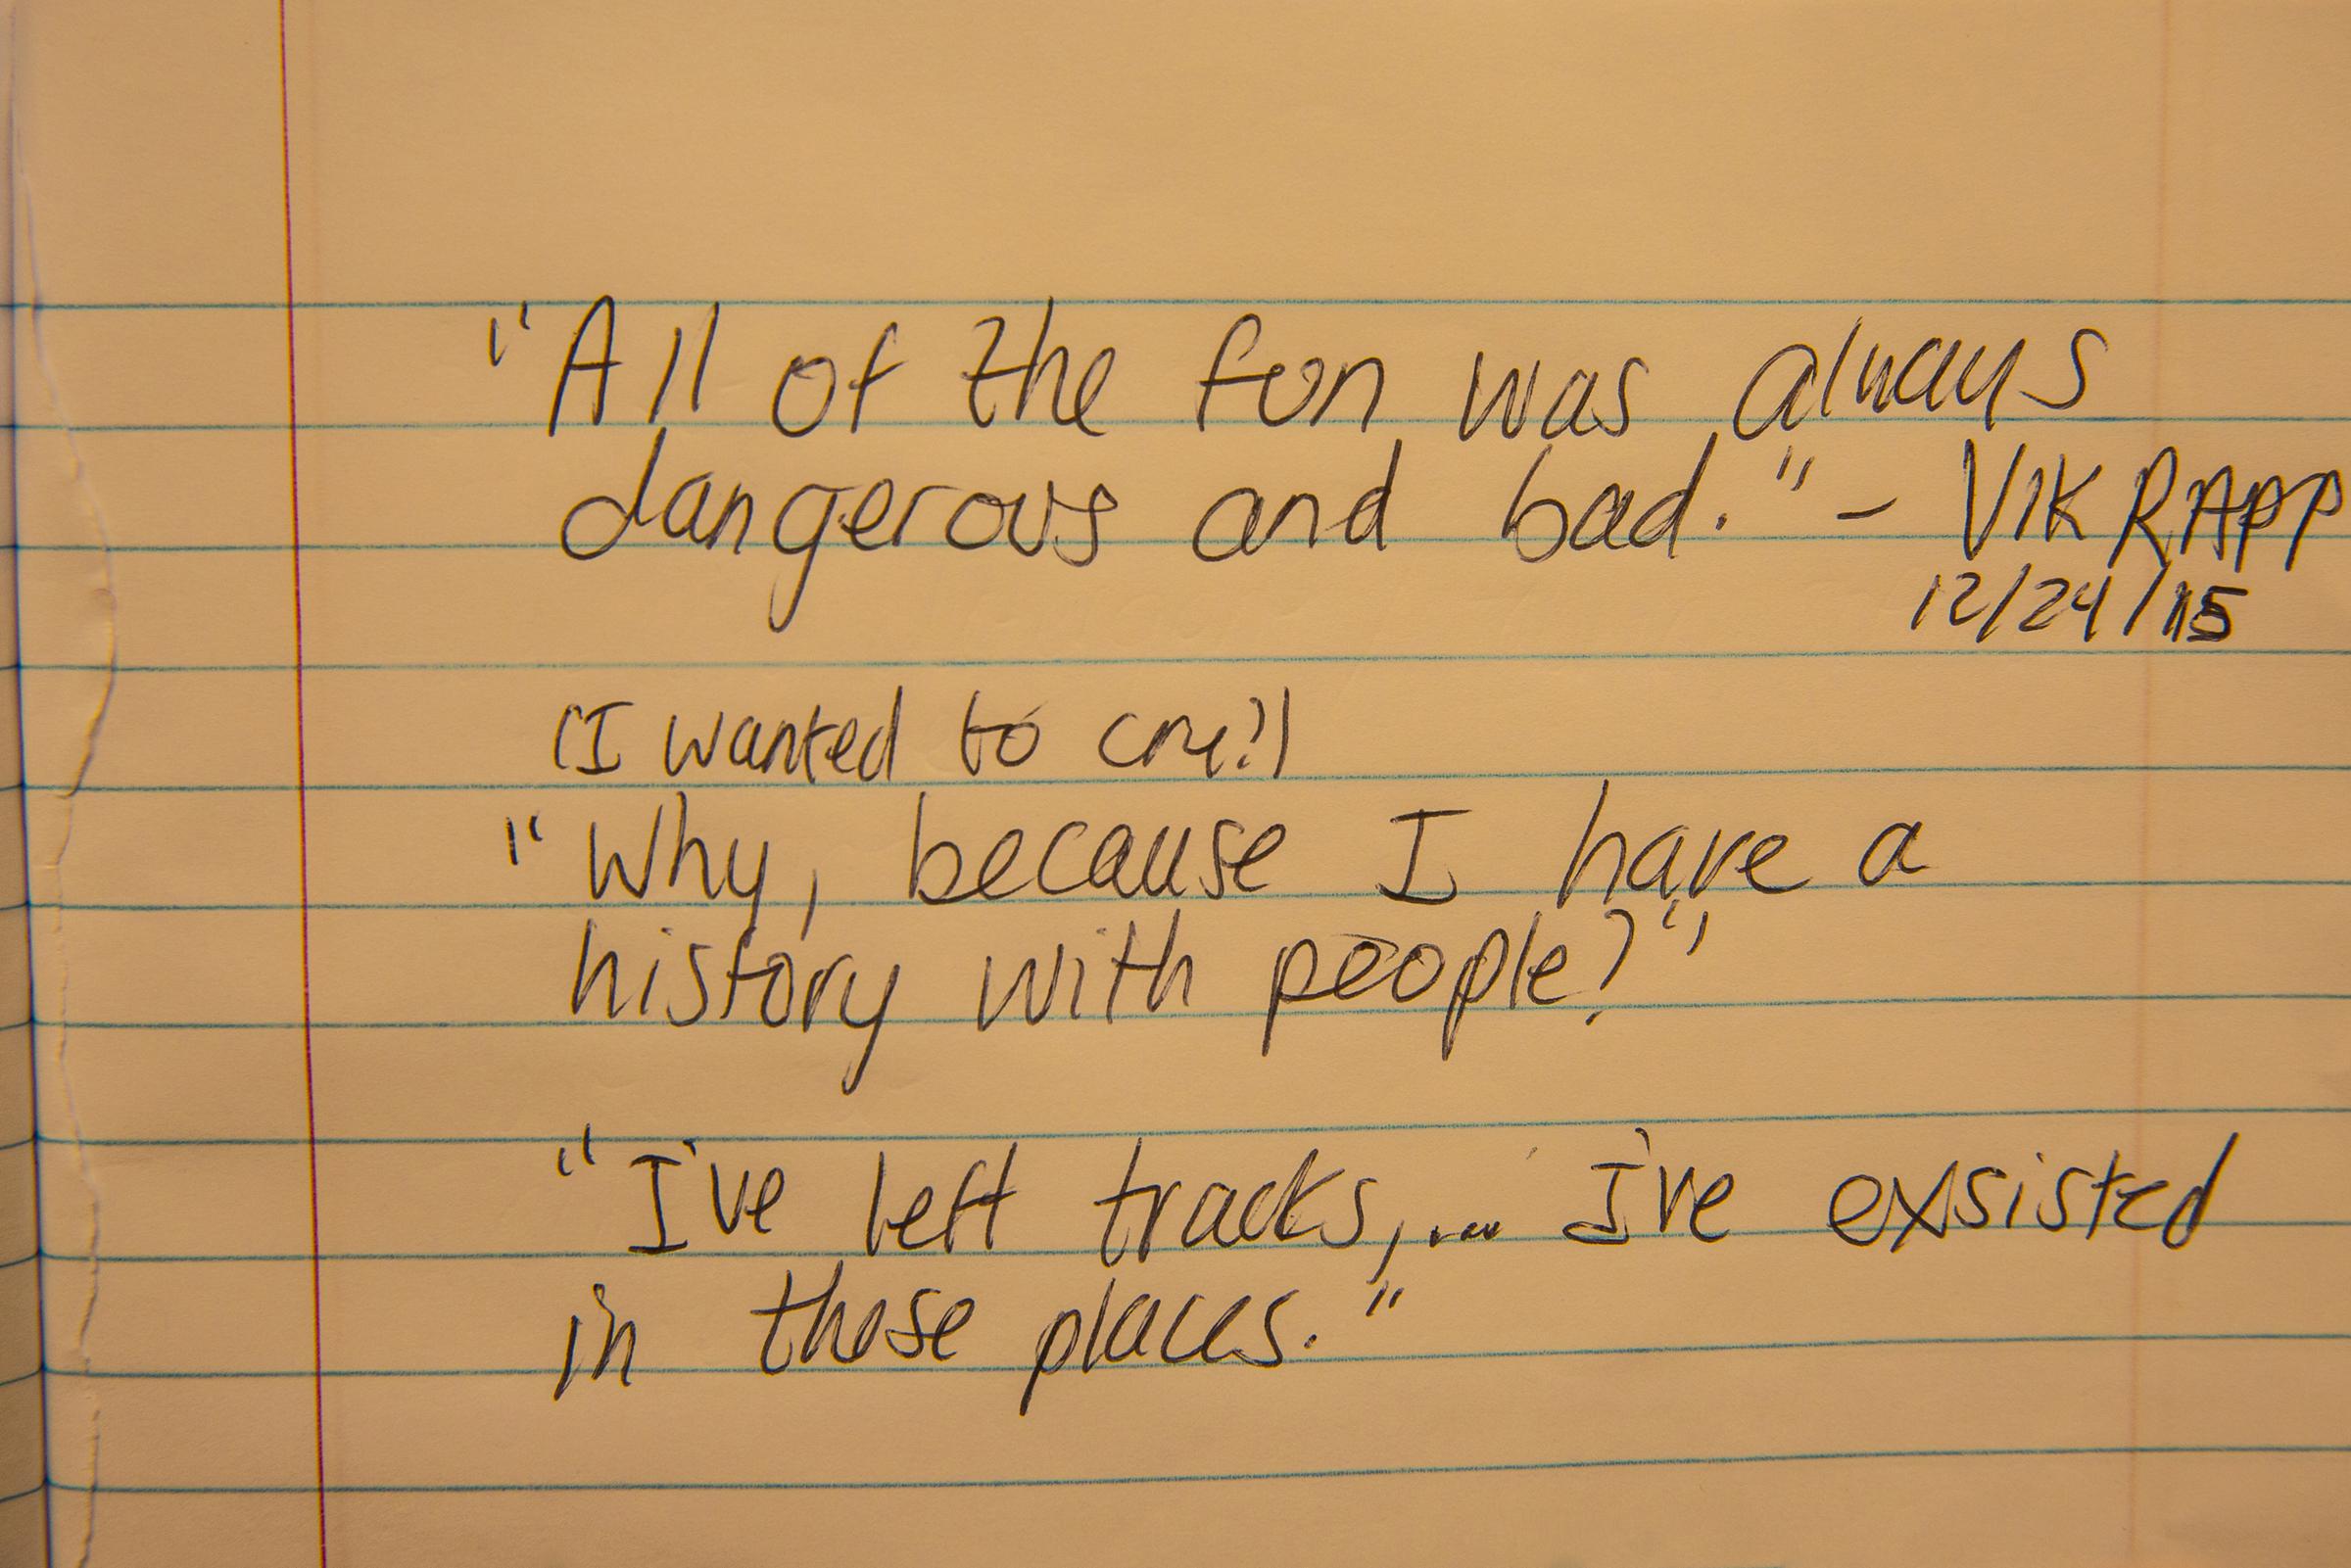 "All of the fun was always
dangerous and bad." - VIK RAPP
12/24/15
(I wanted to cry?)
"Why, because I have a
history with people?"
"I've left tracks,... I've exsisted
in these places."